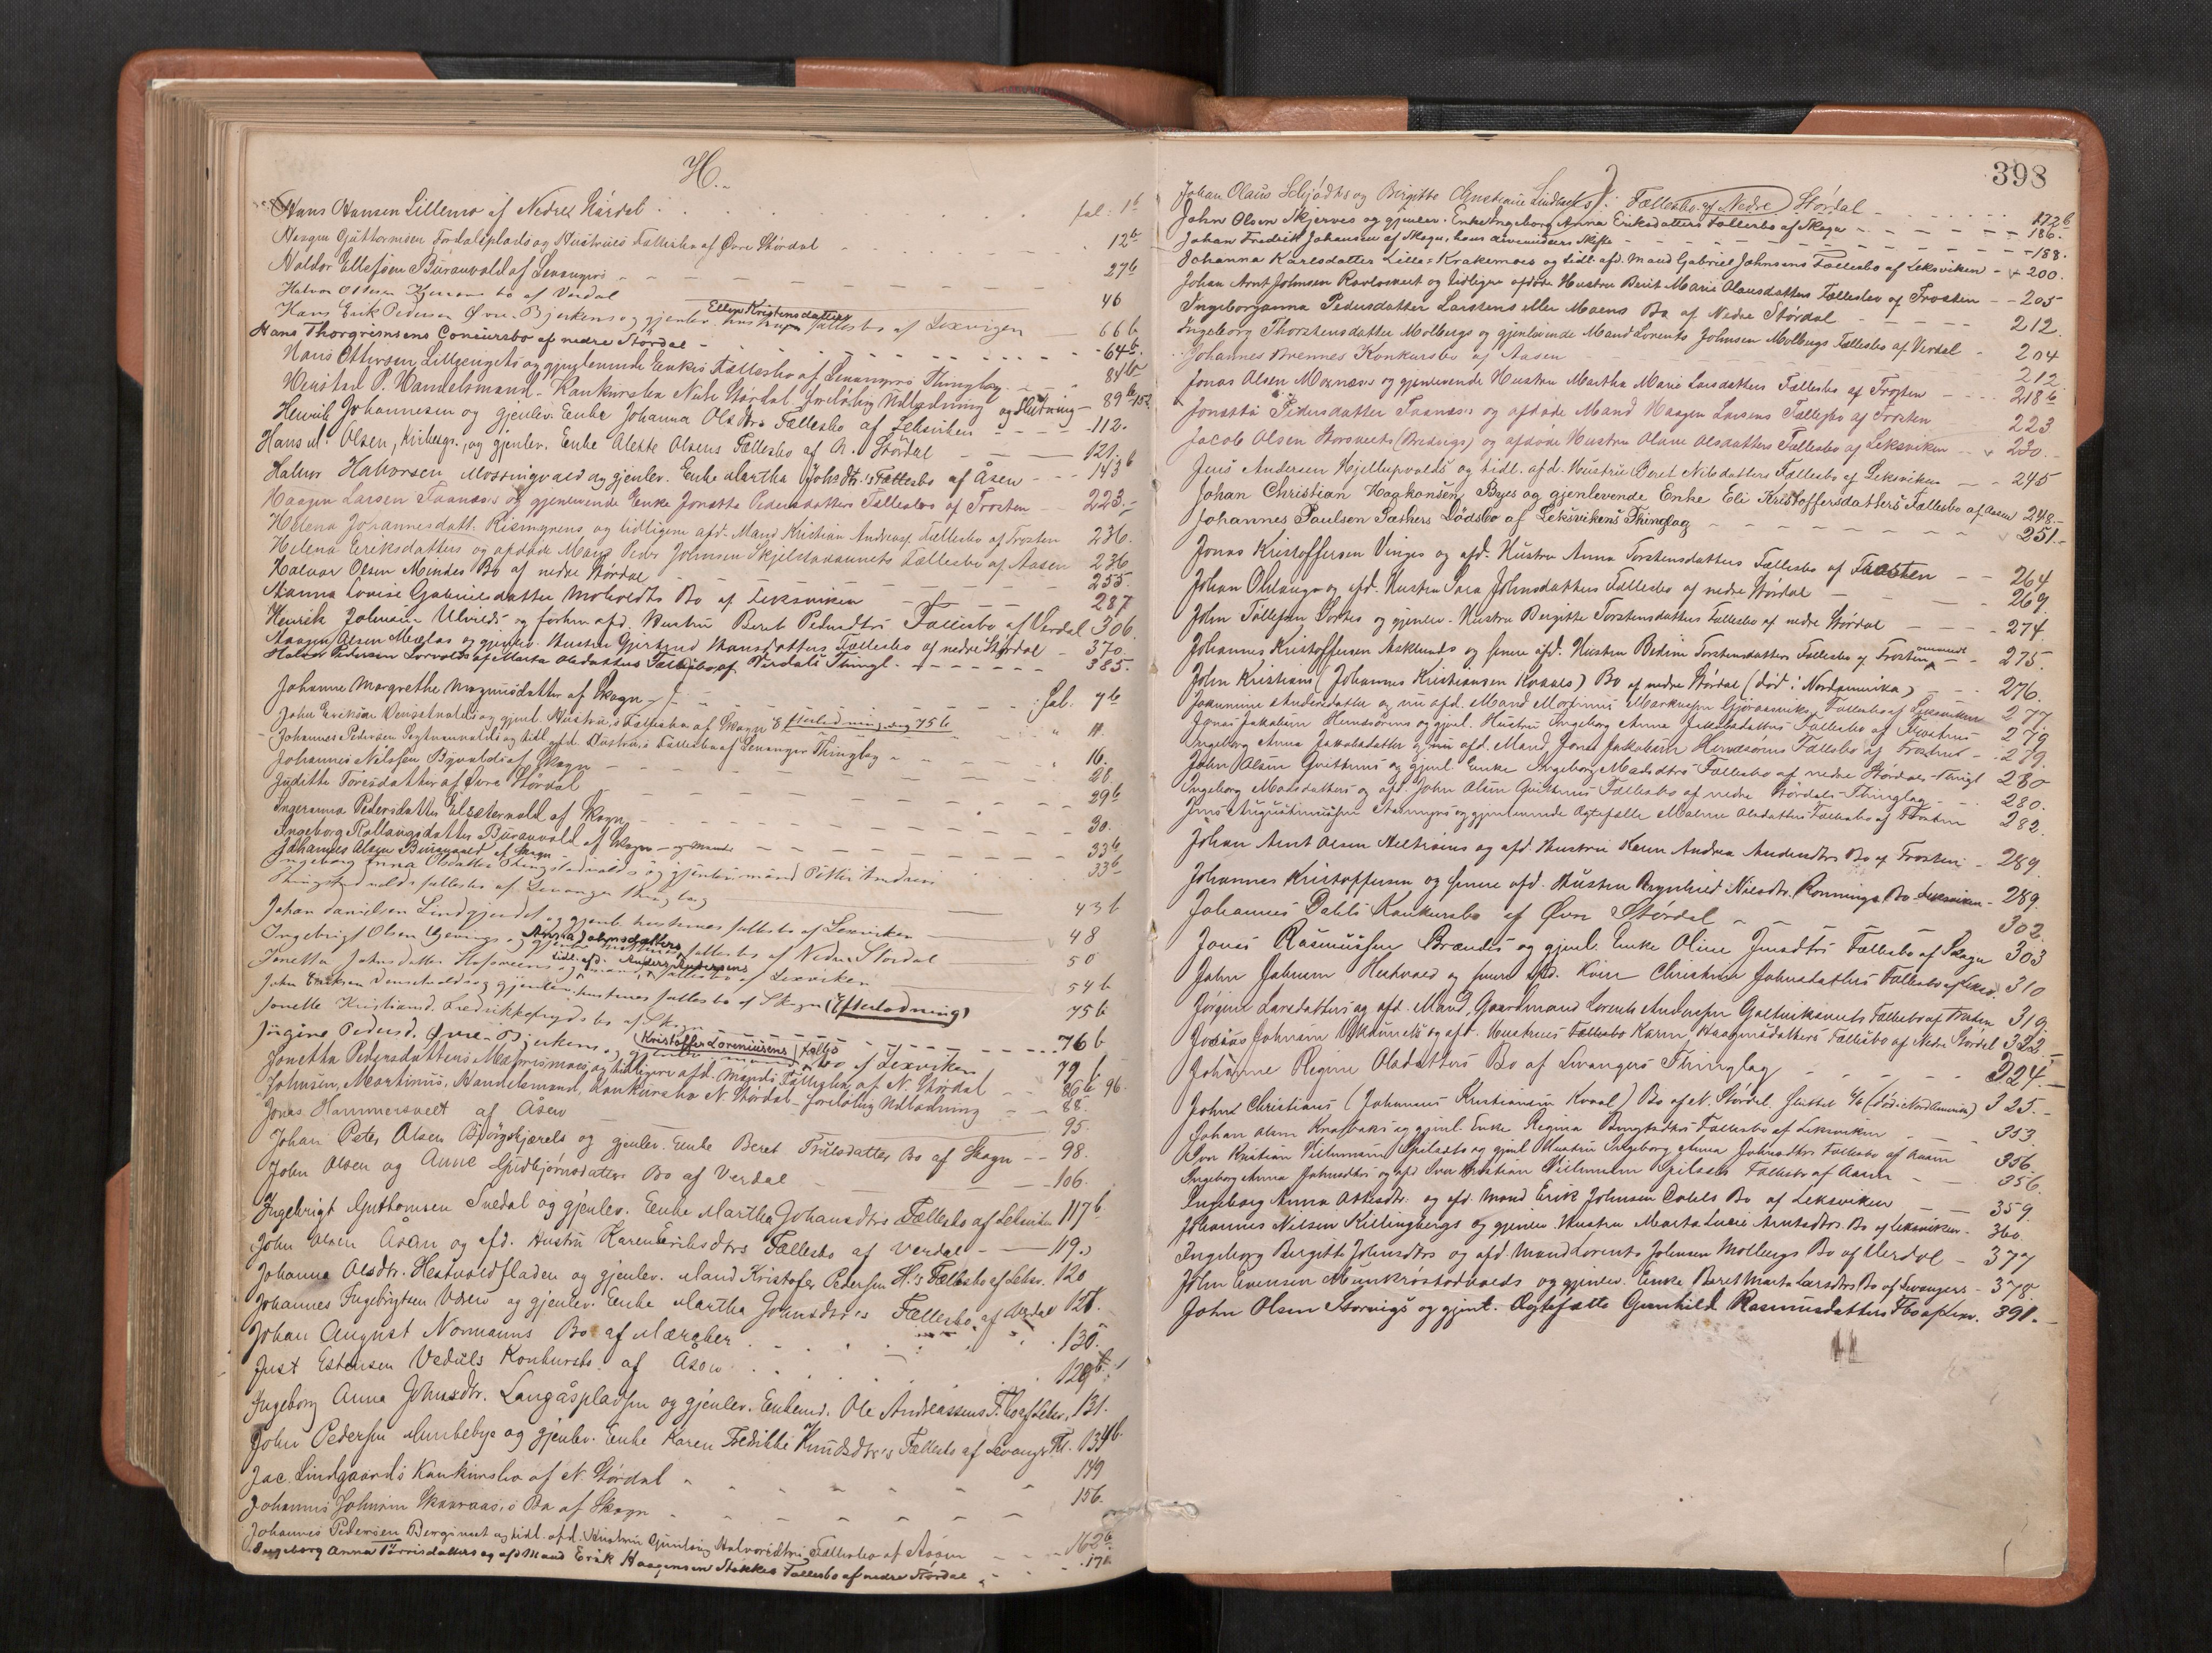 H.
Hans Hansen Lillemo af Nedre Størdal fol. 1b
Haagen Guttormsen Fordalsplads og Hustrues Fællesbo af Øvre Størdal 12b
Haldor Ellefsen Buranvald af Levanger 27b
Halvor Olsen bo af Verdal 46
Hans Erik Pedersen Øvre-Bjerkens og gjenlev. Ellen Kristensdatters fællesbo af Lexvigen 66b
Hans Thorgrimsens Concursbo af nedre Størdal 64b.
Hans Ottersen Lillegengets og gjenlevende Enkes Fællesbo af Levangers Thinglag 84b
P. Handelsmand. Konkursbo Nedre Størdal foreløbig Udlodning og Slutning 89b 152
Henrik Johannesen og gjenlev. Enke Johanna Olsdtrs Fællesbo af Leksviken 112.
Hans M. Olsen, Kirkesgr., og gjenlev. Enke Alette Olsens Fællesbo af N. Størdal 121.
Halvor Halvorsen Mossningvald og gjenlev. Enke Martha Johsdtr.'s Fællesbo af Åsen 143b
Haagen Larsen Faanæs's og gjenlevende Enke Jonetta Pedersdatters Fællesbo af Frosten 223.
Helena Johannesdatt. Rismyrens og tidligere afd. Mand Kristian Andreas' Fællesbo af Frosten 236.
Helena Eriksdatters og afdøde Mand Peder Johnsen Skjelstadaunets Fællesbo af Aasen 236
Halvor Olsen Mindes Bo af nedre Størdal 255.
Hanna Lovise Gabrielsdatter Moholdts Bo af Leksviken 287
Henrik Johnsen Ulvilds og forhen afd. Hustru Beret Pedersdtrs Fællesbo af Verdal 306.
Haagen Olsen Mæglas og gjenlev. Hustru Gjertrud Hansdatters Fællesbo af nedre Størdal 370.
Halvor Pedersen Lorvolds af Marta Olsdatters Fællesbo af Verdals Thingl. 385.
J.
Johanne Margrethe Magnusdatter af Skogn fol. 7b
John Eriksen Venstvolds og gjenl. Hustru's Fællesbo af Skogn & Efterlodning, sig 75b 11.
Johannes Pedersen og tidl. afd. Hustru's Fællesbo af Levanger Thinglag 16.
Johannes Nilssen Byvolds af Skogn 28
Judithe Toresdatter af Øvre Størdal 29b
Ingeranna Pedersdatter Elvsetervald af Skogn 30.
Ingeborg Rollaugsdatter Buranvold af Skogn og Mand 33b
Johannes Olsen Buranvald af Skogn 33b
Ingeborg Anna Olsdatter Thingstadvolds og gjenlev. mand Petter Andreas
Thingstadvolds fællesbo af Levanger Thinglag 43b
Johan Danielsen Lindgjerdet og gjenl. hustrues fællesbo af Lexviken 48
Ingebrigt Olsen Gevings og gjenlev. Anna Johnsdatters fællesbo af Nedre Stordal 50
Jonetta Johnsdatter og tidl. afd. mand Anders Andersens fællesbo af Lexviken 54b
John Eriksen Venstvolds og gjenlev. hustrues fællesbo af Skogn (Efterlodning) 75b
Jonette Kristiansd. Fredrikkefryds bo af Skogn 76b
Jørgine Pedersd. Øvre-Bjerkens og Kristoffer Loreniusens fælles bo af Lexviken 79b
Jonetta Pedersdatters og tidligere afd. Mands Fællesbo af N. Størdal 86b 96.
Johnsen, Martinus, Handelsmand, Konkursbo N. Størdal foreløbig Udlodning 88.
Jonas Hammersvedt af Åsen 95.
Johan Peter Olsen Bjørgskjærels og gjenlev. Enke Beret Trulsdatter Bo af Skogn 98.
John Olsen og Anne Gudbjørnsdatter Bo af Verdal 106.
Ingebrigt Guttormsen Snedal og gjenlev. Enke Martha Johansdtrs Fællesbo af Leksviken 117b.
John Olsen Åsan og afd. Hustru Karen Eriksdtrs Fællesbo af Verdal 119.
Johanna Olsdtr. Hestvoldfladen og gjenlev. Mand Kristofer Pedersen H.'s Fællesbo af Leksv. 120
Johannes Ingebrigtsen og gjenlev. Enke Martha Johnsdtr's Fællesbo af Verdal 121.
Johan August Normanns Bo af Meraker 130.
Just Estensen Veduls Konkursbo af Åsen 129b
Ingeborg Anna Johnsdtr. Langåspladsen og gjenlev. Enkemd. Ole Andreassens F.bo af Leksv. 131.
John Pedersen Munkeby og gjenlev. Enke Karen Fredrikke Knudsdtr's Fællesbo af Levanger Th. 134b.
Jac. Lindgaards Konkursbo af N. Størdal 149
Johannes Johnsen Skavraas's Bo af Skogn 156.
Johannes Pedersen og tidl. afd. Hustru Gunlaug Halvorsdtrs Fællesbo af Åsen 162b
Ingeborg Anna Torrisdatters og afd. Mand Erik Haagensen Stokkes Fællesbo af nedre Størdal 170.
398
J.
Johan Olaus Schjødts og Birgitte Christiane Lindbacks Fællesbo af Nedre Størdal 172b
John Olsen Skjerves og gjenlev. Enke Ingeborg Anna Eriksdatters Fællesbo af Skogn 186.
Johan Fredrik Johansen af Skogn, hans Skifte 188.
Johanna Karlsdatter Lille-Krakemoes og tidl. afd. Mand Gabriel Johnsens Fællesbo af Leksviken 200.
Johan Arnt Johnsen og tidligere afdøde Hustru Berit Marie Olausdatters Fællesbo af Frosten 205
Ingeborganna Pedersdatter Larssens eller Moens Bo af Nedre Størdal 212.
Ingeborg Thorstensdatter Molbergs og gjenlevende Mand Lorents Johnsen Molbergs Fællesbo af Verdal 204
Johannes Brennes Konkursbo af Aasen 212.
Jonas Olsen Moxnæss og gjenlevende Hustru Martha Marie Larsdatters Fællesbo af Frosten 218b
Jonetta Pedersdatter Faanæs's og afdøde Mand Haagen Larsens Fællesbo af Frosten 223
Jacob Olsen Storsveets (Bredvigs) og afdøde Hustru Olava Olsdatters Fællesbo af Leksviken 230.
Jens Andersen Hjellupvalds og tidl. afd. Hustru Beret Nilsdatters Fællesbo af Leksviken 245
Johan Christian Haakonsen Byes og gjenlevende Enke Eli Kristoffersdatters Fællesbo af Aasen 248.
Johannes Paulsen Sæthers Dødsbo af Leksvikens Thinglag 251.
Jonas Kristoffersen Vinges og afd. Hustru Anna Torstensdatters Fællesbo af Frosten 264
Johan Ohlauga og afd. Hustru Sara Johnsdatters Fællesbo af nedre Størdal 269.
John Tollefsen Sortes og gjenlev. Hustru Bergitte Torstensdatters Fællesbo af nedre Størdal 274.
Johannes Kristoffersen Asklunds og senere afd. Hustru Bedine Torstensdatters Fællesbo af Frosten 275.
John Kristians (Johannes Kristiansen Kvaals) Bo af nedre Størdal (død i Nordamerika) 276.
Joannine Andersdatter og nu afd. Mand Mortinus Markussen Fællesbo af Leksviken 277.
Jonas Jakobsen og gjenl. Hustru Ingeborg Anna Jakobsdatters Fællesbo af Frostens 279
Ingeborg Anna Jakobsdatter og nu afd. Mand Jonas Jakobsen Fællesbo af Frostens 279.
John Olsen og gjenl. Enke Ingeborg Madsdtrs Fællesbo af nedre Størdals-Thingl. 280
Ingeborg Madsdatters og afd. John Olsen Fællesbo af nedre Størdals-Thinglag 280.
Jens Augustinussen og gjenlevende Ægtefælle Malene Olsdatters Fællesbo af Frosten 282.
Johan Arnt Olsen og afd. Hustru Karen Andrea Andersdtrs Bo af Frosten 289.
Johannes Kristoffersen og senere afd. Hustru Brynhild Nilsdtr. Rønnings Bo Leksviken 289.
Johannes Dahls Konkursbo af Øvre Størdal 302.
Jonas Rasmussen Brændes og gjenl. Enke Oline Jensdtrs Fællesbo af Skogn 303
John Johnsen Hestvold og senere afd. Kone Christine Johnsdatters Fællesbo af Leksv. 310
Jørgine Larsdatters og afd. Mand, Gaardmand Lorents Andersen Fællesbo af Frosten 319.
Josias Johnsen og afd. Hustrues Karen Haagensdatters Fællesbo af Nedre Størdal 322.
Johanne Regine Olsdatters Bo af Levangers Thinglag 324.
John Christians (Johannes Kristiansen Kvaal) Bo af N. Størdal. sluttet 4/6 (død i Nordamerika) 325.
Johan Olsen og gjenl. Enke Regina Bengtsdtrs Fællesbo af Leksviken 353
Iver Kristian Vilhelmsen Spilsets og gjenl. Hustru Ingeborg Anna Johnsdtrs Fællesbo af Aasen 356.
Ingeborg Anna Johnsdtrs og afd. Iver Kristian Vilhelmsen Spilsets Fællesbo af Aasen 356.
Ingeborg Anna Ottesdtr. og afd. mand Erik Johnsen Dahls Bo af Leksviken 359.
Johannes Nilsen Killingbergs og gjenlev. Hustru Marta Lucie Arntsdtrs. Bo af Leksviken 360.
Ingeborg Bergitte Johnsdtrs og afd. Mand Lorents Johnsen Molbergs Bo af Verdal 377
John Evensen Munkrøstadvalds og gjenlev. Enke Beret Marta Larsdtrs Bo af Levanger 378.
John Olsen Storvigs og gjenl. Ægtefælle Gunhild Rasmusdatters Fbo af Lexv. 391.